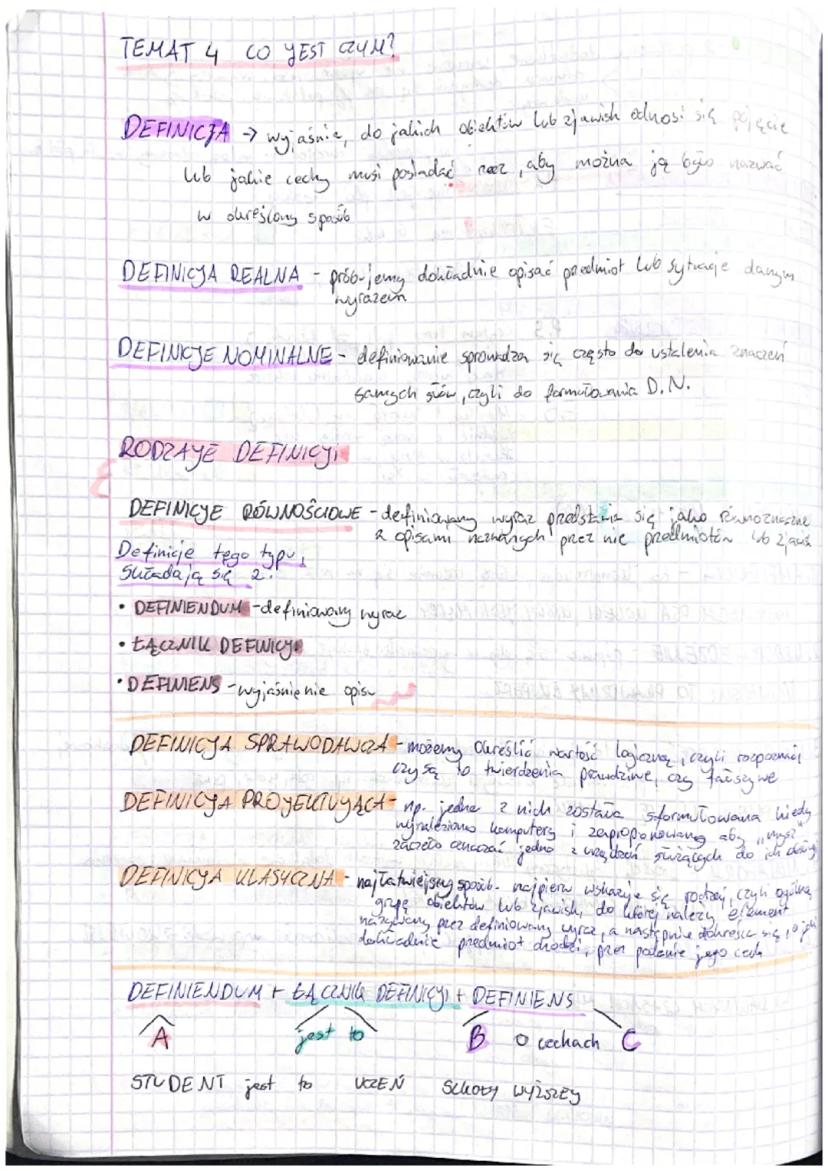 TEMAT 4 CO JEST CZYM?
DEFINICJA → wyjaśnia, do jakich obiektów lub zjawisk odnosi się pojęcie
lub jakie cechy musi posiadać rzecz, aby można ją było nazwać
w określony sposób
DEFINICJA REALNA - próbujemy dokładnie opisać przedmiot lub sytuację danym
wyrazem
DEFINICJE NOMINALNE - definiowanie sprowadza się często do ustalenia znaczeń
samych słów, czyli do formułowania D.N.
RODZAJE DEFINICJI
DEFINICJE RÓWNOŚCIOWE - definiowany wyraz przedstawia się jako równoznaczne
z opisami nazwanych przez nie przedmiotów lub zjawisk
Definicje tego typu
składają się z:
• DEFINIENDUM - definiowany wyraz
• ŁĄCZNIK DEFINICJI
• DEFINIENS - wyjaśnienie opisu
DEFINICJA SPRAWODAWCZA - możemy określić wartość logiczną, czyli rozpoznać
czy są to twierdzenia prawdziwe, czy fałszywe
DEFINICJA PROJEKTUJĄCA - np. jedna z nich została sformułowana kiedy
wynaleziono komputery i zaproponowano, aby "mysz"
zaczęło oznaczać jedno z urządzeń służących do ich
DEFINICJA KLASYCZNA - najłatwiejszy sposób. najpierw wskazuje się rodzaj, czyli ogólną
grupę obiektów lub zjawisk, do której należy element
nazywany przez definiowany wyraz, a następnie dookreśla się, o jaki
dokładnie przedmiot chodzi, przez podanie jego cech
DEFINIENDUM + ŁĄCZNIK DEFINICJI + DEFINIENS
A jest to B o cechach C
STUDENT jest to UCZEŃ SZKOŁY WYŻSZEJ